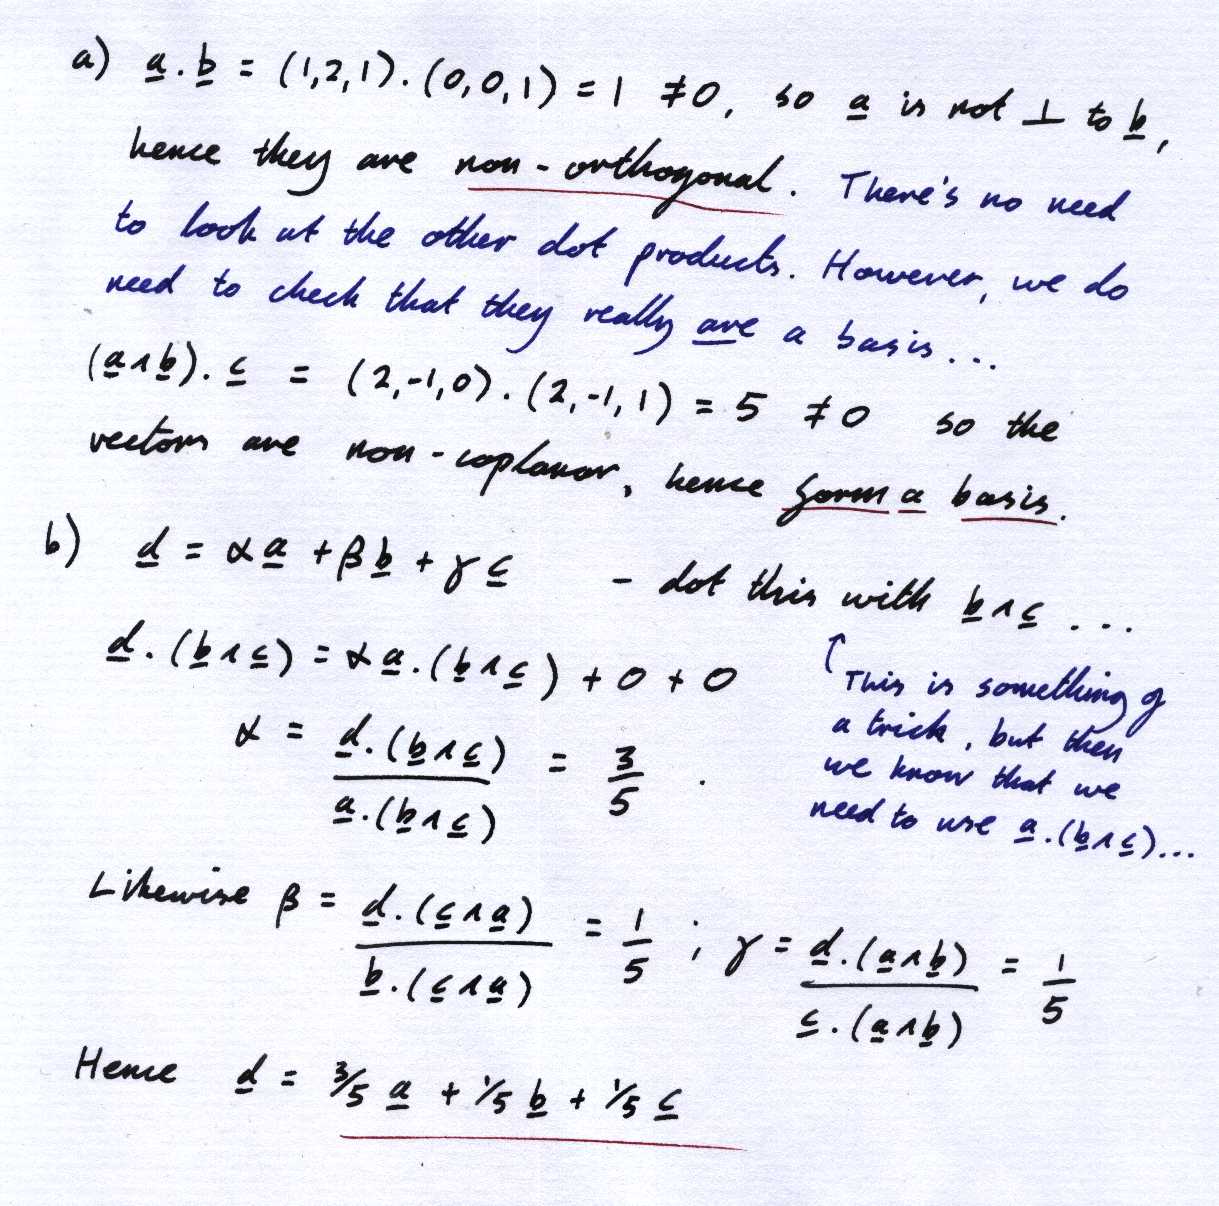 a) a.b = (1,2,1).(0,0,1) = 1 ≠0, so a is not ⊥ to b,
hence they are non-orthogonal. There's no need
to look at the other dot products. However, we do
need to check that they really are a basis...
(a∧b).c = (2,-1,0).(2,-1,1) = 5 ≠ 0 so the
vectors are non-coplanar, hence form a basis.
b) d = αa + βb + γc - dot this with b∧c ...
d.(b∧c) = αa.(b∧c) + 0 + 0
↑ This is something of
a trick, but then
we know that we
need to use a.(b∧c)...
α = d.(b∧c) / a.(b∧c) = 3/5.
Likewise β = d.(c∧a) / b.(c∧a) = 1/5 ; γ = d.(a∧b) / c.(a∧b) = 1/5
Hence d = 3/5 a + 1/5 b + 1/5 c